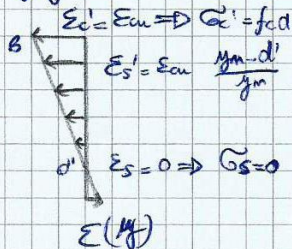 εc' = εcu => σc' = fcd
B
εs' = εcu (ym - d')/ym
d'
εs = 0 => σs = 0
ε(y)